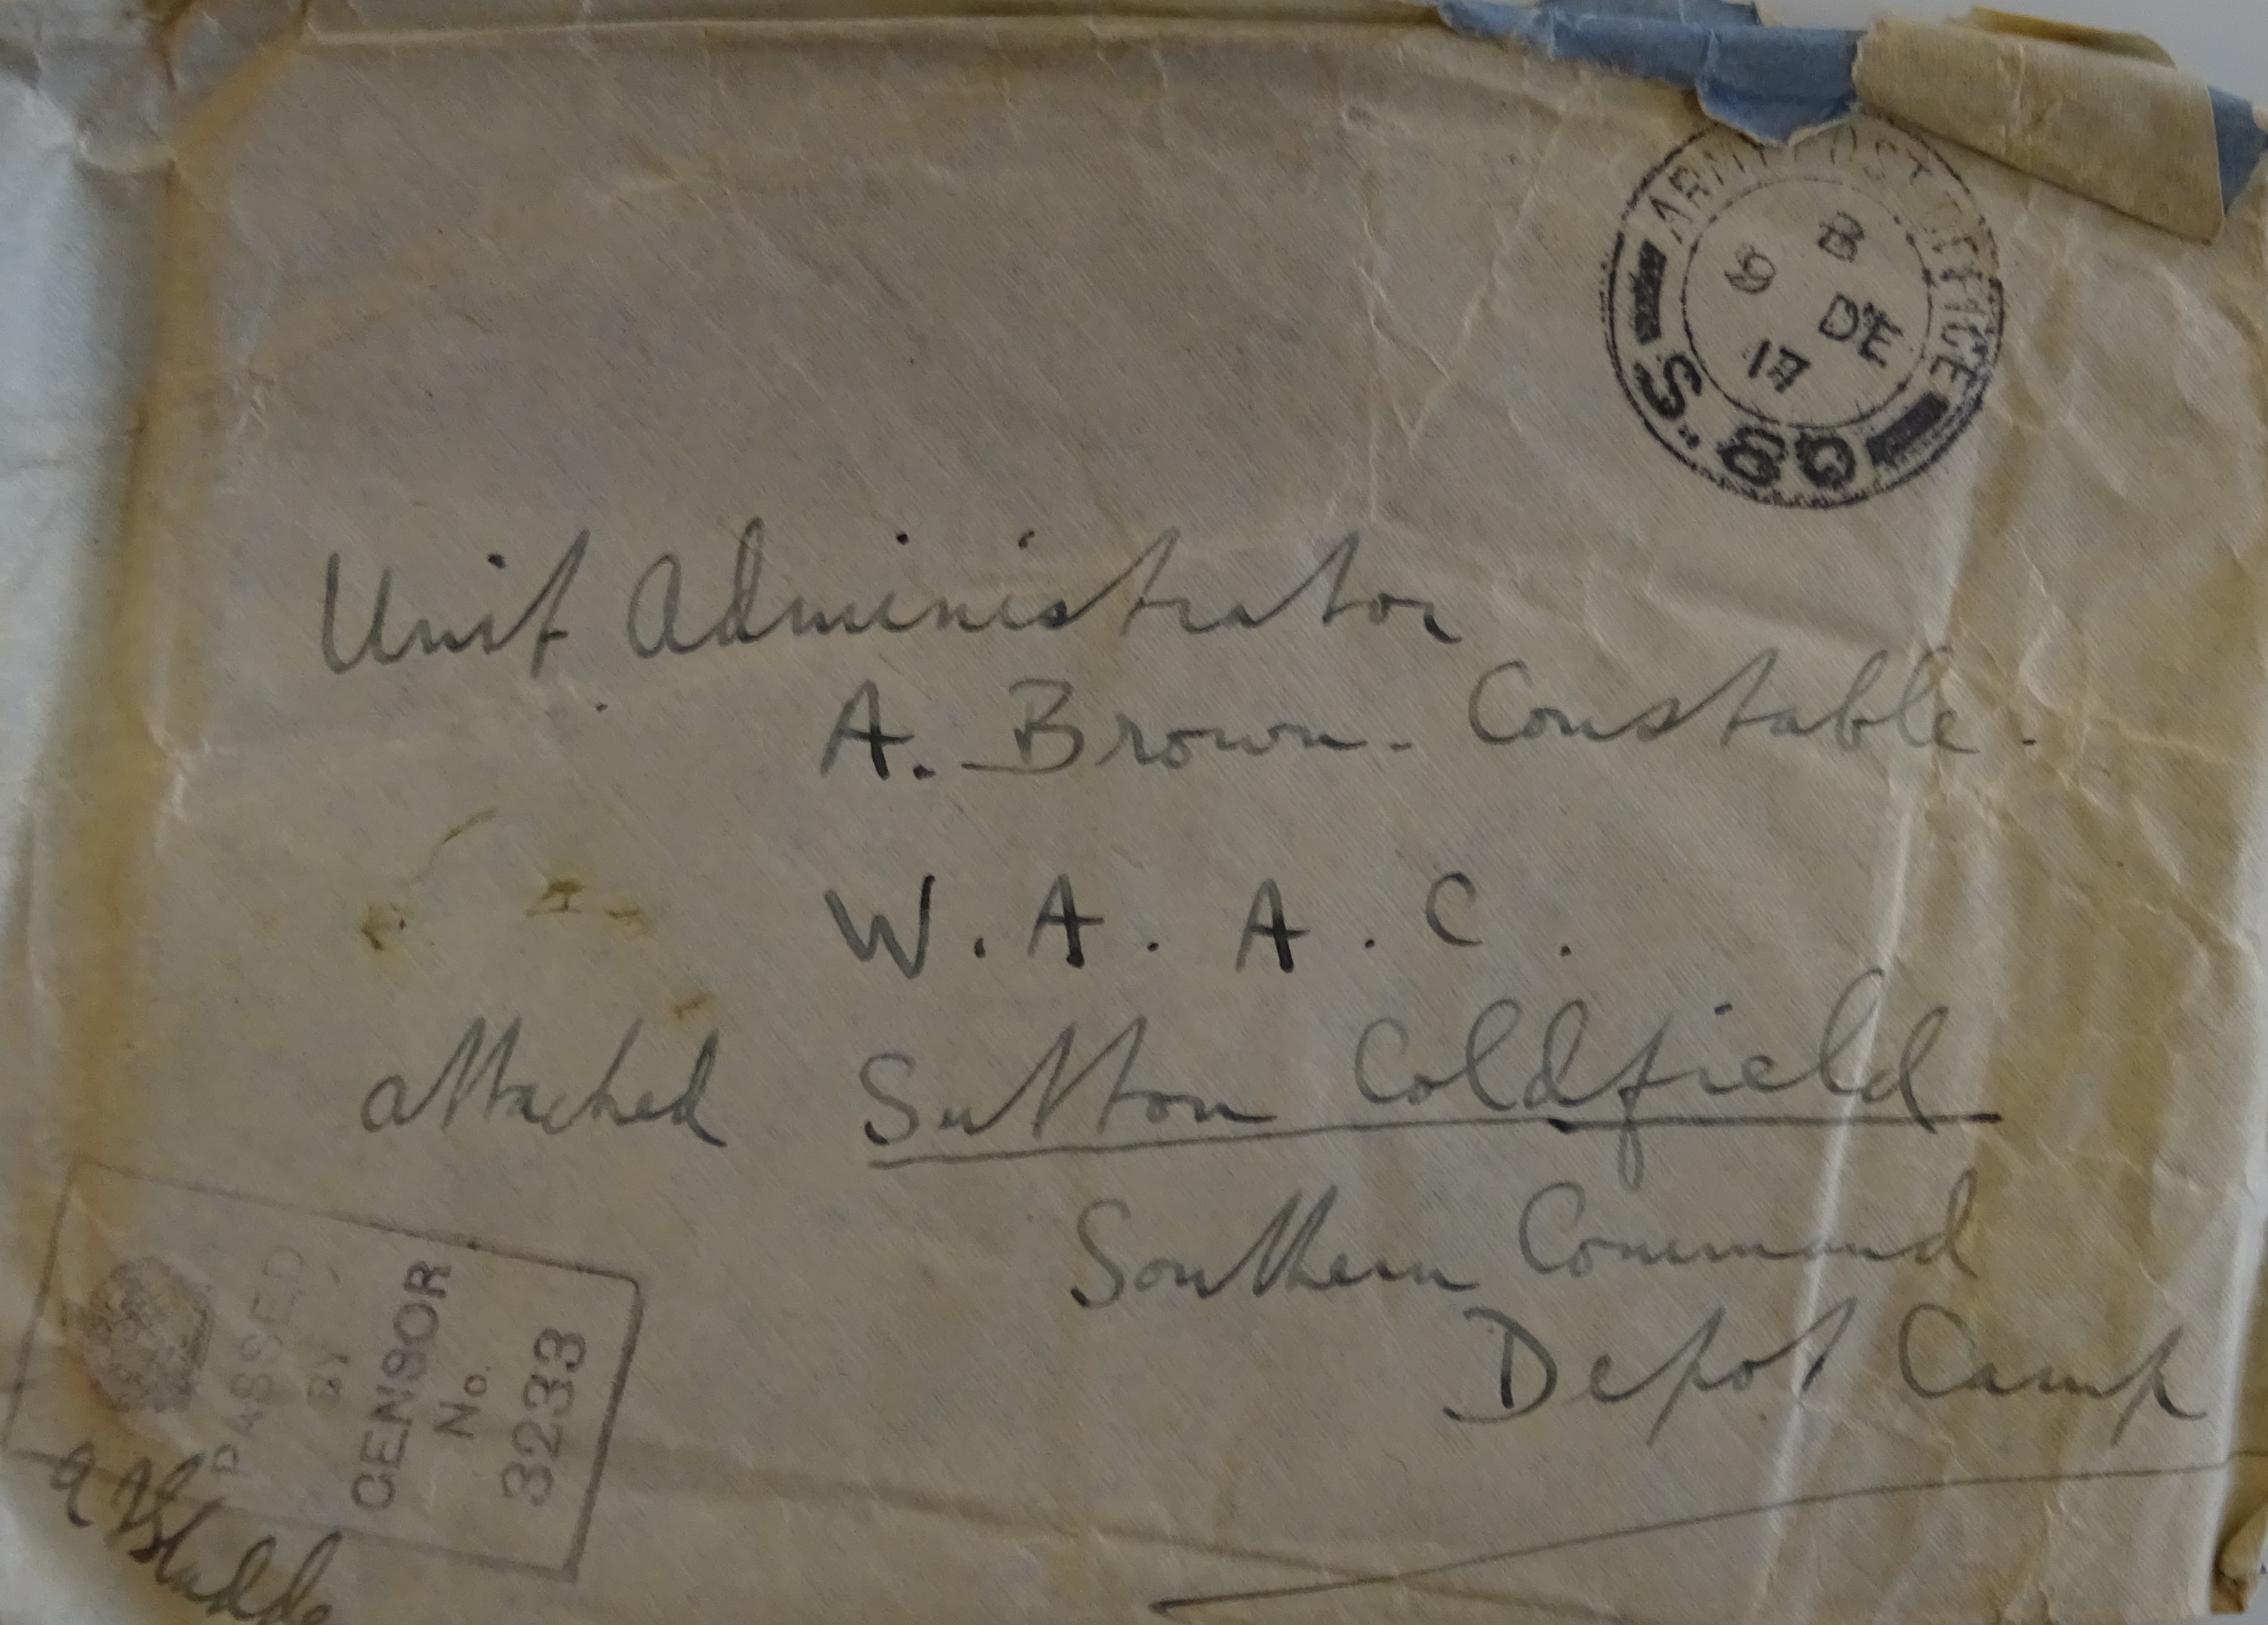 ARMY POST OFFICE
B
6 DE
17
Unit Administrator
A. Brown-Constable.
W. A. A. C.
attached Sutton Coldfield
Southern Command
Depot Camp
PASSED
BY
CENSOR
No.
3233